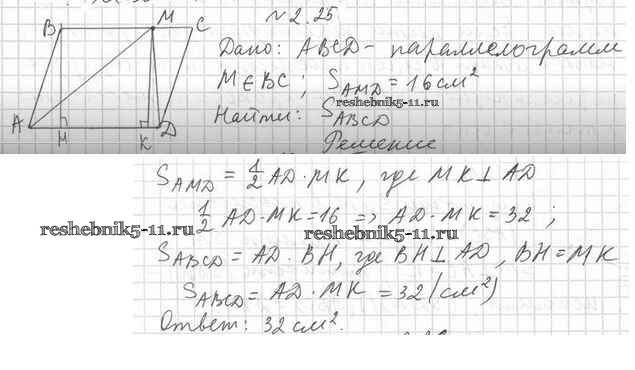 №2.25
B M C
Дано: ABCD - параллелограмм
M∈BC; S_AMD = 16 см²
reshebnik5-11.ru
Найти: S_ABCD
A H K D
Решение
S_AMD = 1/2 AD·MK, где MK⊥AD
1/2 AD·MK=16 => AD·MK=32;
reshebnik5-11.ru reshebnik5-11.ru
S_ABCD = AD·BH, где BH⊥AD, BH=MK
S_ABCD = AD·MK = 32 (см²)
Ответ: 32 см².